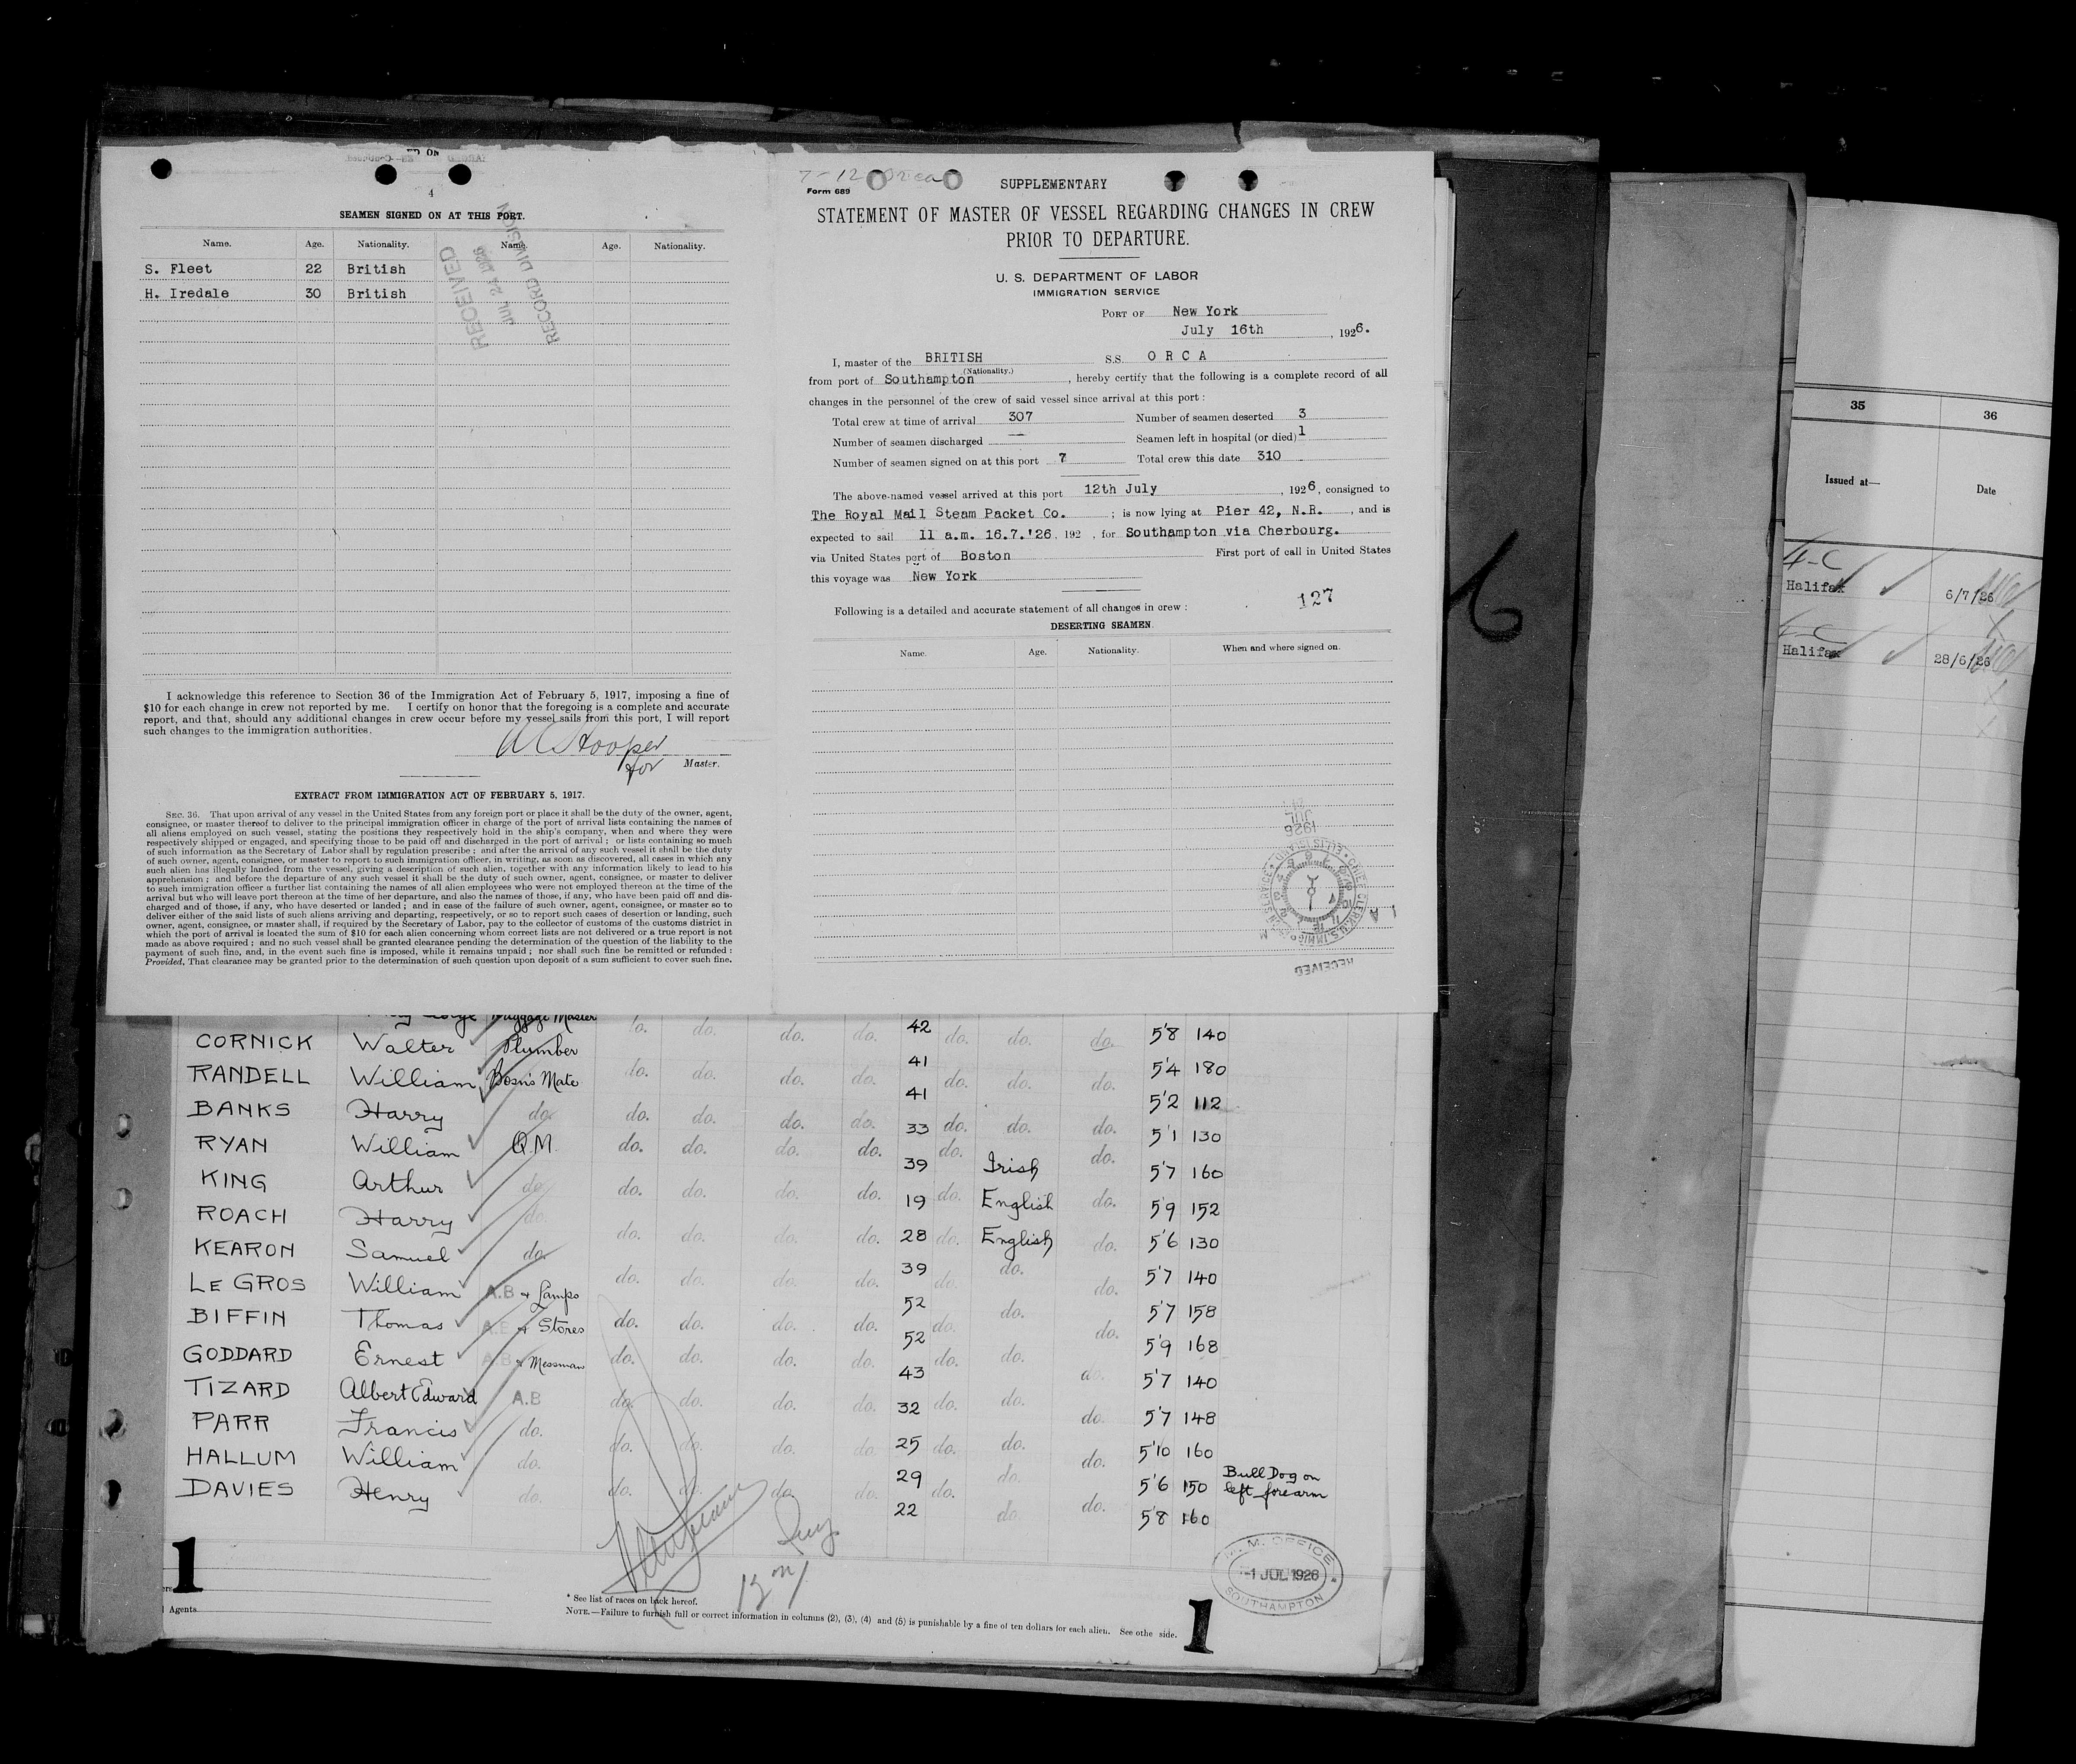 4
SEAMEN SIGNED ON AT THIS PORT.
Name. Age. Nationality. Name. Age. Nationality.
S. Fleet 22 British
H. Iredale 30 British
RECEIVED
JUL 24 1926
RECORD DIVISION
I acknowledge this reference to Section 36 of the Immigration Act of February 5, 1917, imposing a fine of
$10 for each change in crew not reported by me. I certify on honor that the foregoing is a complete and accurate
report, and that, should any additional changes in crew occur before my vessel sails from this port, I will report
such changes to the immigration authorities.
Hooper
for Master.
EXTRACT FROM IMMIGRATION ACT OF FEBRUARY 5, 1917.
SEC. 36. That upon arrival of any vessel in the United States from any foreign port or place it shall be the duty of the owner, agent,
consignee, or master thereof to deliver to the principal immigration officer in charge of the port of arrival lists containing the names of
all aliens employed on such vessel, stating the positions they respectively hold in the ship's company, when and where they were
respectively shipped or engaged, and specifying those to be paid off and discharged in the port of arrival ; or lists containing so much
of such information as the Secretary of Labor shall by regulation prescribe ; and after the arrival of any such vessel it shall be the duty
of such owner, agent, consignee, or master to report to such immigration officer, in writing, as soon as discovered, all cases in which any
such alien has illegally landed from the vessel, giving a description of such alien, together with any information likely to lead to his
apprehension ; and before the departure of any such vessel it shall be the duty of such owner, agent, consignee, or master to deliver
to such immigration officer a further list containing the names of all alien employees who were not employed thereon at the time of the
arrival but who will leave port thereon at the time of her departure, and also the names of those, if any, who have been paid off and dis-
charged and of those, if any, who have deserted or landed ; and in case of the failure of such owner, agent, consignee, or master so to
deliver either of the said lists of such aliens arriving and departing, respectively, or so to report such cases of desertion or landing, such
owner, agent, consignee, or master shall, if required by the Secretary of Labor, pay to the collector of customs of the customs district in
which the port of arrival is located the sum of $10 for each alien concerning whom correct lists are not delivered or a true report is not
made as above required ; and no such vessel shall be granted clearance pending the determination of the question of the liability to the
payment of such fine, and, in the event such fine is imposed, while it remains unpaid ; nor shall such fine be remitted or refunded :
Provided, That clearance may be granted prior to the determination of such question upon deposit of a sum sufficient to cover such fine.
7-12 Orca
Form 689
SUPPLEMENTARY
STATEMENT OF MASTER OF VESSEL REGARDING CHANGES IN CREW
PRIOR TO DEPARTURE.
U. S. DEPARTMENT OF LABOR
IMMIGRATION SERVICE
PORT OF New York
July 16th , 1926.
I, master of the BRITISH S.S. O R C A
(Nationality.)
from port of Southampton , hereby certify that the following is a complete record of all
changes in the personnel of the crew of said vessel since arrival at this port :
Total crew at time of arrival 307 Number of seamen deserted 3
Number of seamen discharged — Seamen left in hospital (or died) 1
Number of seamen signed on at this port 7 Total crew this date 310
The above-named vessel arrived at this port 12th July , 1926, consigned to
The Royal Mail Steam Packet Co. ; is now lying at Pier 42, N.R. , and is
expected to sail 11 a.m. 16.7.'26, 192 , for Southampton via Cherbourg.
via United States port of Boston First port of call in United States
this voyage was New York
127
Following is a detailed and accurate statement of all changes in crew :
DESERTING SEAMEN.
Name. Age. Nationality. When and where signed on.
JUL
1926
RECEIVED
6
35 36
Issued at— Date
4-C
Halifax 6/7/26
4-C
Halifax 28/6/26
Baggage Master do. do. do. do. 42 do. do. do. 5'8 140
CORNICK Walter Plumber do. do. do. do. 41 do. do. do. 5'4 180
RANDELL William Bosn's Mate do. do. do. do. 41 do. do. do. 5'2 112
BANKS Harry do. do. do. do. do. 33 do. do. do. 5'1 130
RYAN William Q.M. do. do. do. do. 39 do. Irish do. 5'7 160
KING Arthur do. do. do. do. do. 19 do. English do. 5'9 152
ROACH Harry do. do. do. do. do. 28 do. English do. 5'6 130
KEARON Samuel do. do. do. do. do. 39 do. do. do. 5'7 140
LE GROS William A.B & Lamps do. do. do. do. 52 do. do. do. 5'7 158
BIFFIN Thomas A.B & Stores do. do. do. do. 52 do. do. do. 5'9 168
GODDARD Ernest A.B & Messman do. do. do. do. 43 do. do. do. 5'7 140
TIZARD Albert Edward A.B do. do. do. do. 32 do. do. do. 5'7 148
PARR Francis do. do. do. do. do. 25 do. do. do. 5'10 160
HALLUM William do. do. do. do. do. 29 do. do. do. 5'6 150 Bull Dog on left forearm
DAVIES Henry do. 22 do 5'8 160
1
Agents
* See list of races on back hereof.
NOTE.—Failure to furnish full or correct information in columns (2), (3), (4) and (5) is punishable by a fine of ten dollars for each alien. See othe side.
1
M. M. OFFICE
-1 JUL 1926
SOUTHAMPTON